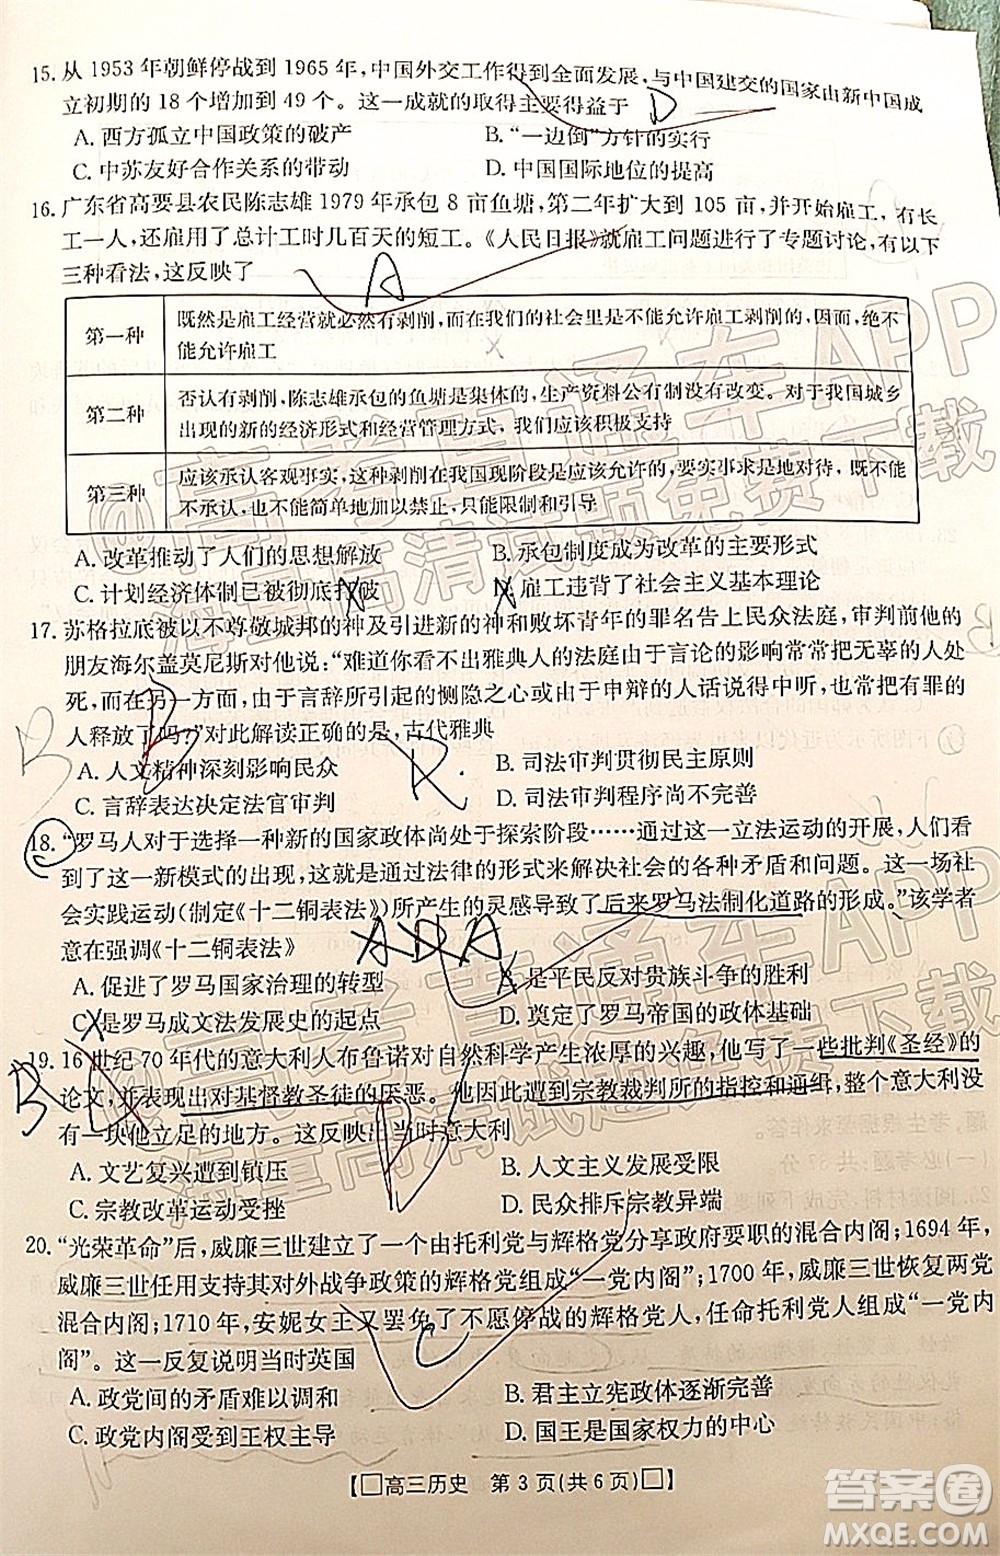 15. 从 1953 年朝鲜停战到 1965 年，中国外交工作得到全面发展，与中国建交的国家由新中国成
立初期的 18 个增加到 49 个。这一成就的取得主要得益于 D
A. 西方孤立中国政策的破产 B. “一边倒”方针的实行
C. 中苏友好合作关系的带动 D. 中国国际地位的提高
16. 广东省高要县农民陈志雄 1979 年承包 8 亩鱼塘，第二年扩大到 105 亩，并开始雇工，有长
工一人，还雇用了总计工时几百天的短工。《人民日报》就雇工问题进行了专题讨论，有以下
三种看法，这反映了 A
第一种 既然是雇工经营就必然有剥削，而在我们的社会里是不能允许雇工剥削的，因而，绝不
能允许雇工
第二种 否认有剥削，陈志雄承包的鱼塘是集体的，生产资料公有制没有改变。对于我国城乡
出现的新的经济形式和经营管理方式，我们应该积极支持
第三种 应该承认客观事实，这种剥削在我国现阶段是应该允许的，应实事求是地对待，既不能
不承认，也不能简单地加以禁止，只能限制和引导
A. 改革推动了人们的思想解放 B. 承包制度成为改革的主要形式
C. 计划经济体制已被彻底打破 D. 雇工违背了社会主义基本理论
17. 苏格拉底被以不尊敬城邦的神及引进新的神和败坏青年的罪名告上民众法庭，审判前他的
朋友海尔盖莫尼斯对他说：“难道你看不出雅典人的法庭由于言论的影响常常把无辜的人处
死，而在另一方面，由于言辞所引起的恻隐之心或由于申辩的人话说得中听，也常把有罪的
人释放了吗？”对此解读正确的是，古代雅典
A. 人文精神深刻影响民众 B. 司法审判贯彻民主原则
C. 言辞表达决定法官审判 D. 司法审判程序尚不完善
18. “罗马人对于选择一种新的国家政体尚处于探索阶段……通过这一立法运动的开展，人们看
到了这一新模式的出现，就是通过法律的形式来解决社会的各种矛盾和问题。这一次的社
会实践运动（制定《十二铜表法》）所产生的灵感导致了后来罗马法制化道路的形成。”该学者
意在强调《十二铜表法》
A. 促进了罗马国家治理的转型 B. 是平民反对贵族斗争的胜利
C. 是罗马成文法发展史的起点 D. 奠定了罗马帝国的政体基础
19. 16 世纪 70 年代的意大利人布鲁诺对自然科学产生浓厚的兴趣，他写了一些批判《圣经》的
论文，并表现出对基督教圣徒的厌恶。他因此遭到宗教裁判所的指控和通缉，整个意大利没
有一块他立足的地方。这反映出当时意大利
A. 文艺复兴遭到镇压 B. 人文主义发展受限
C. 宗教改革运动受挫 D. 民众排斥宗教异端
20. “光荣革命”后，威廉三世建立了一个由托利党与辉格党分享政府要职的混合内阁；1694 年，
威廉三世任用支持其对外战争政策的辉格党组成“一党内阁”；1700 年，威廉三世恢复两党
混合内阁；1710 年，安妮女王又罢免了不愿停战的辉格党人，任命托利党人组成“一党内
阁”。这一反复说明当时英国 C
A. 政党间的矛盾难以调和 B. 君主立宪政体逐渐完善
C. 政党内阁受到王权主导 D. 国王是国家权力的中心
【□高三历史 第 3 页（共 6 页）□】
@高考直通车APP
海量高清试题免费下载
@高考直通车APP
海量高清试题免费下载
答案圈
MXQE.COM